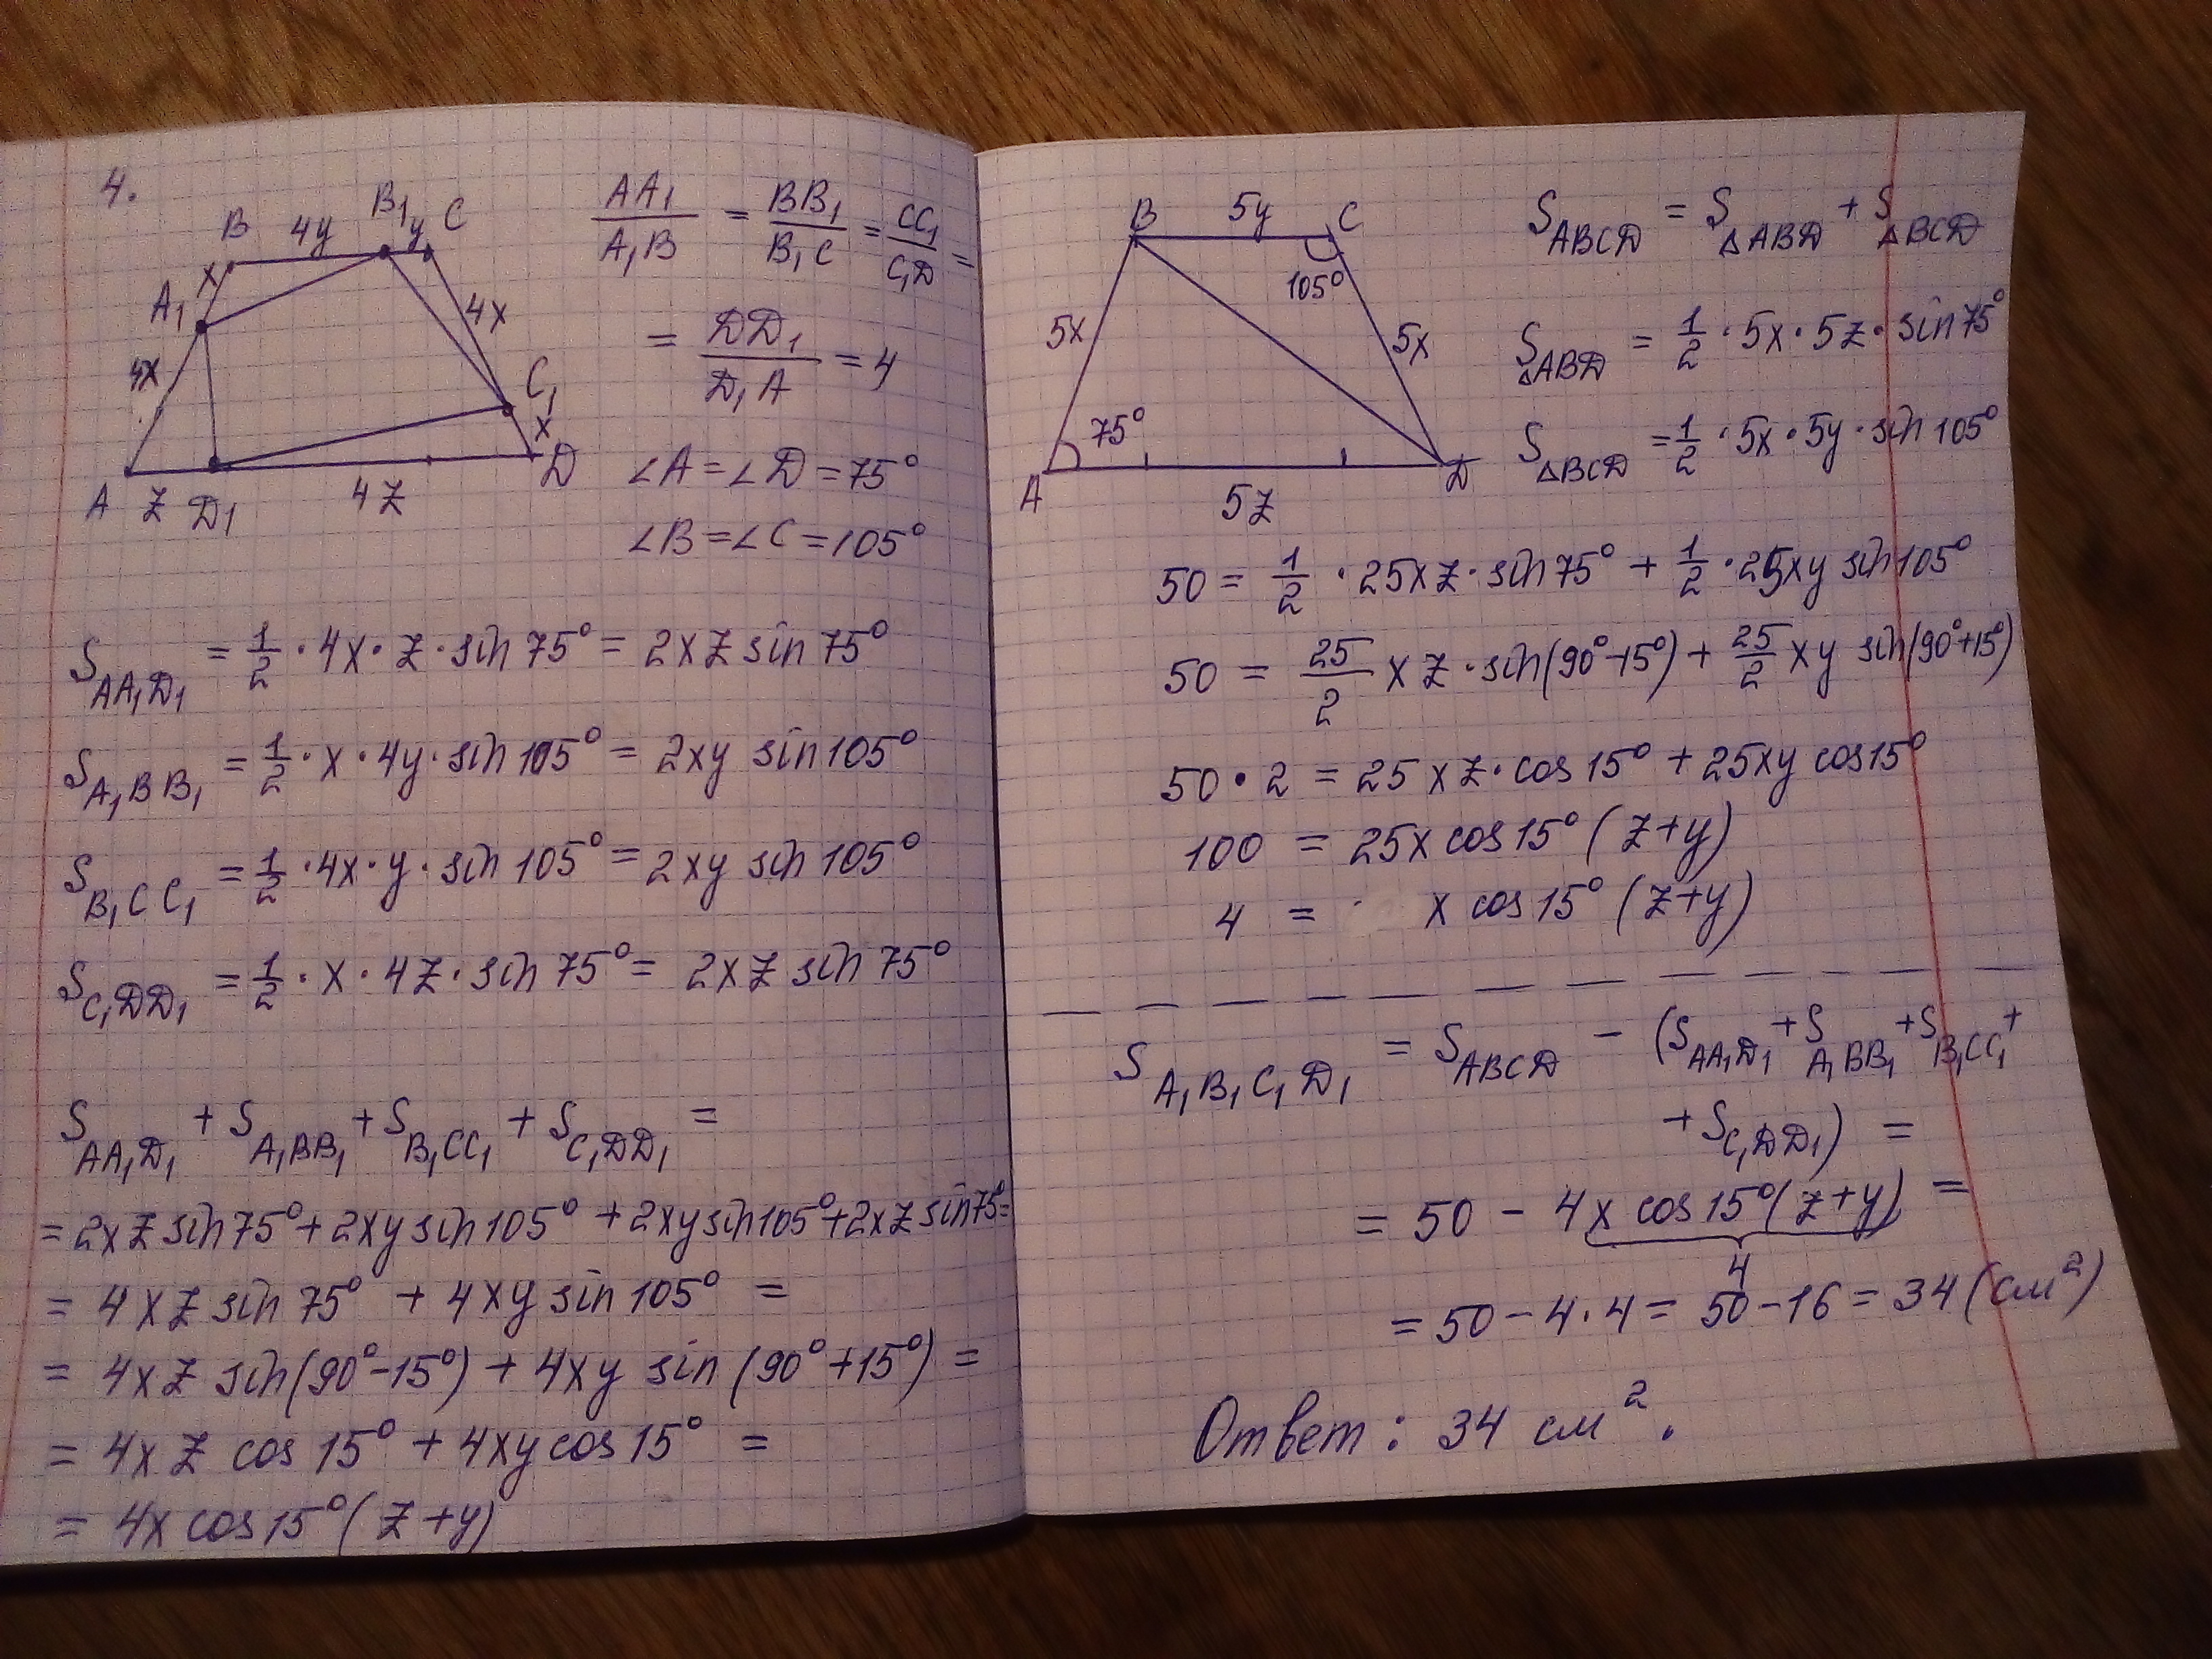 4.
B 4y B₁ y C
x
A₁
4x
4x
C₁
x
A z D₁ 4z D
AA₁/A₁B = BB₁/B₁C = CC₁/C₁D =
= DD₁/D₁A = 4
∠A = ∠D = 75°
∠B = ∠C = 105°
S_AA₁D₁ = 1/2 · 4x · z · sin 75° = 2xz sin 75°
S_A₁BB₁ = 1/2 · x · 4y · sin 105° = 2xy sin 105°
S_B₁CC₁ = 1/2 · 4x · y · sin 105° = 2xy sin 105°
S_C₁DD₁ = 1/2 · x · 4z · sin 75° = 2xz sin 75°
S_AA₁D₁ + S_A₁BB₁ + S_B₁CC₁ + S_C₁DD₁ =
= 2xz sin 75° + 2xy sin 105° + 2xy sin 105° + 2xz sin 75° =
= 4xz sin 75° + 4xy sin 105° =
= 4xz sin(90° - 15°) + 4xy sin (90° + 15°) =
= 4xz cos 15° + 4xy cos 15° =
= 4x cos 15° (z + y)
B 5y C
105°
5x 5x
75°
A 5z D
S_ABCD = S_△ABD + S_△BCD
S_△ABD = 1/2 · 5x · 5z · sin 75°
S_△BCD = 1/2 · 5x · 5y · sin 105°
50 = 1/2 · 25xz · sin 75° + 1/2 · 25xy sin 105°
50 = 25/2 xz · sin(90° - 15°) + 25/2 xy sin(90° + 15°)
50 · 2 = 25xz · cos 15° + 25xy cos 15°
100 = 25x cos 15° (z + y)
4 = x cos 15° (z + y)
S_A₁B₁C₁D₁ = S_ABCD - (S_AA₁D₁ + S_A₁BB₁ + S_B₁CC₁ +
+ S_C₁DD₁) =
= 50 - 4x cos 15° (z + y) =
4
= 50 - 4 · 4 = 50 - 16 = 34 (см²)
Ответ: 34 см².